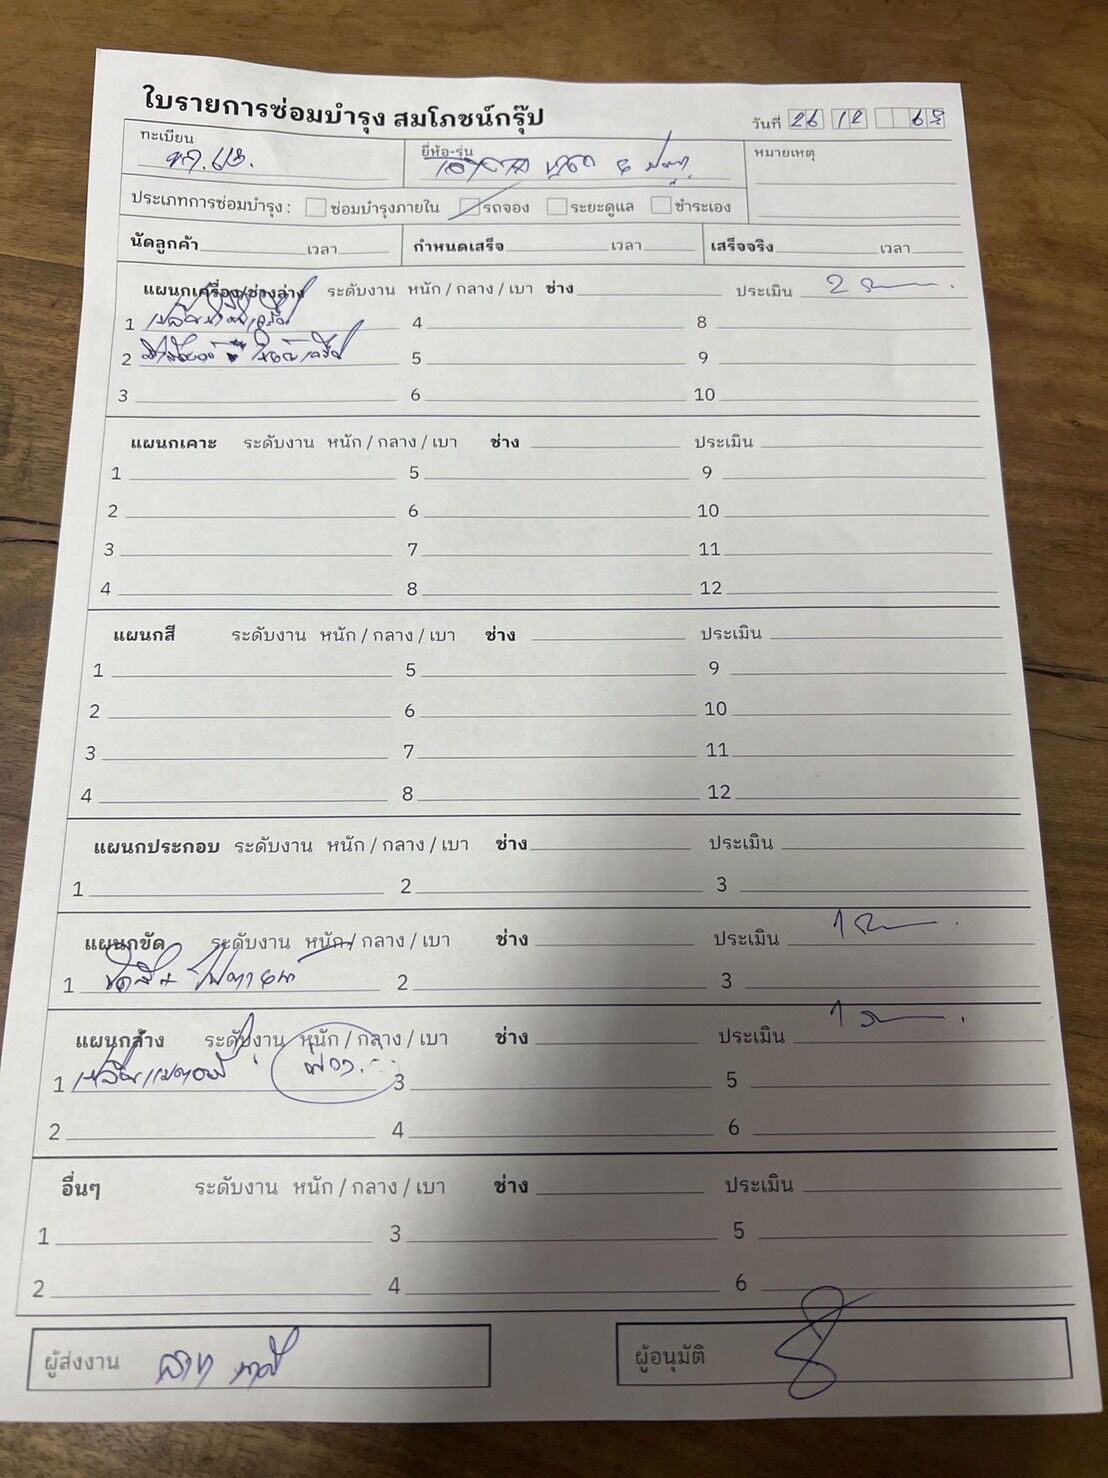 ใบรายการซ่อมบำรุง สมโภชน์กรุ๊ป
วันที่ 26 12 68
ทะเบียน
ยี่ห้อ-รุ่น
หมายเหตุ
ประเภทการซ่อมบำรุง : ซ่อมบำรุงภายใน รถจอง ระยะดูแล ชำระเอง
นัดลูกค้า เวลา กำหนดเสร็จ เวลา เสร็จจริง เวลา
แผนกเครื่อง/ช่วงล่าง ระดับงาน หนัก / กลาง / เบา ช่าง ประเมิน 2
1 4 8
2 5 9
3 6 10
แผนกเคาะ ระดับงาน หนัก / กลาง / เบา ช่าง ประเมิน
1 5 9
2 6 10
3 7 11
4 8 12
แผนกสี ระดับงาน หนัก / กลาง / เบา ช่าง ประเมิน
1 5 9
2 6 10
3 7 11
4 8 12
แผนกประกอบ ระดับงาน หนัก / กลาง / เบา ช่าง ประเมิน
1 2 3
แผนกขัด ระดับงาน หนัก / กลาง / เบา ช่าง ประเมิน 1
1 ขัดสี + 2 3
แผนกล้าง ระดับงาน หนัก / กลาง / เบา ช่าง ประเมิน 1
1 3 5
2 4 6
อื่นๆ ระดับงาน หนัก / กลาง / เบา ช่าง ประเมิน
1 3 5
2 4 6
ผู้ส่งงาน
ผู้อนุมัติ